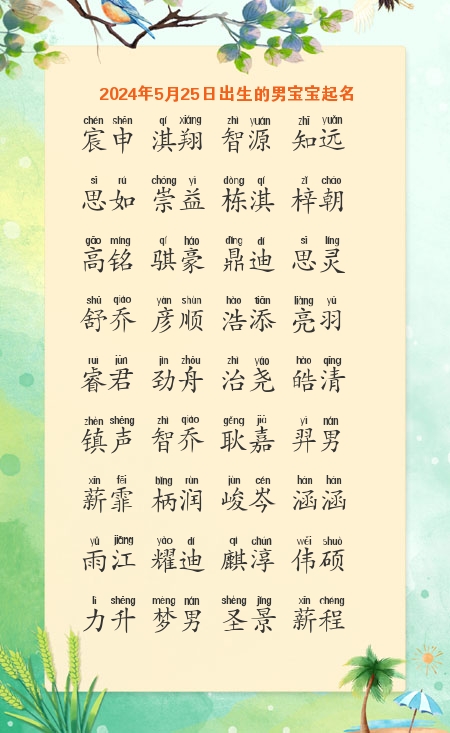 2024年5月25日出生的男宝宝起名
chén shēn qí xiáng zhì yuán zhī yuǎn
宸申 淇翔 智源 知远
sī rú chóng yì dòng qí zǐ cháo
思如 崇益 栋淇 梓朝
gāo míng qí háo dǐng dí sī líng
高铭 骐豪 鼎迪 思灵
shū qiáo yàn shùn hào tiān liàng yǔ
舒乔 彦顺 浩添 亮羽
ruì jūn jìn zhōu zhì yáo hào qīng
睿君 劲舟 治尧 皓清
zhèn shēng zhì qiáo gěng jiā yì nán
镇声 智乔 耿嘉 羿男
xīn fēi bǐng rùn jùn cén hán hán
薪霏 柄润 峻岑 涵涵
yǔ jiāng yào dí qí chún wěi shuò
雨江 耀迪 麒淳 伟硕
lì shēng mèng nán shèng jǐng xīn chéng
力升 梦男 圣景 薪程